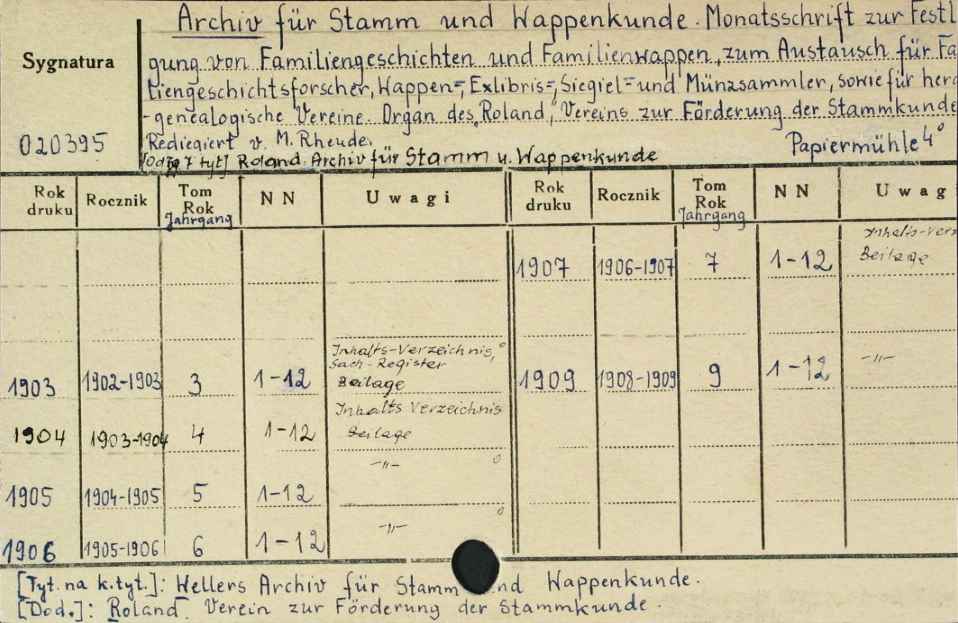 Archiv für Stamm und Wappenkunde. Monatsschrift zur Festl
Sygnatura
gung von Familiengeschichten und Familienwappen, zum Austausch für Fa
liengeschichtsforscher, Wappen=, Exlibris=, Siegiel= und Münzsammler, sowie für hera
-genealogische Vereine. Organ des "Roland", Vereins zur Förderung der Stammkunde
020395
Rediegiert v. M. Rheude.
Papiermühle 4°
Roland. Archiv für Stamm u. Wappenkunde
Rok druku Rocznik Tom Rok Jahrgang NN Uwagi Rok druku Rocznik Tom Rok Jahrgang NN Uwag
1907 1906-1907 7 1-12 Inhalts-Verz
Beilage
Inhalts-Verzeichnis,
Sach-Register
1903 1902-1903 3 1-12 Beilage 1909 1908-1909 9 1-12 -"-
Inhalts Verzeichnis
1904 1903-1904 4 1-12 Beilage
1905 1904-1905 5 1-12 -"-
1906 1905-1906 6 1-12 -"-
[Tyt. na k. tyt.]: Wellers Archiv für Stamm nd Wappenkunde.
[Dod.]: Roland Verein zur Förderung der Stammkunde.